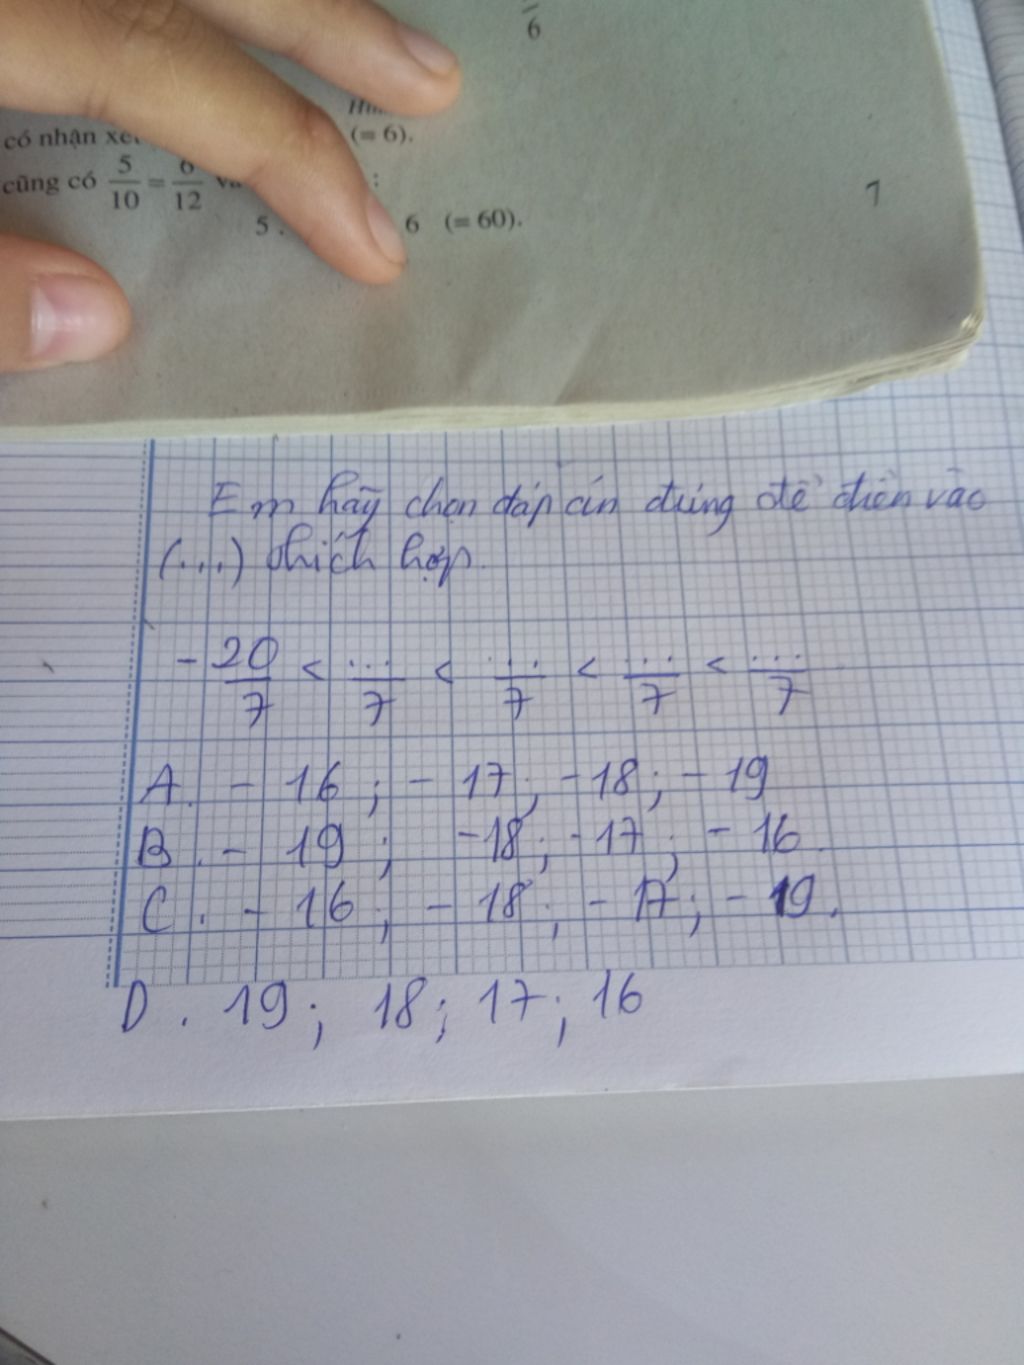 6
có nhận xét
(= 6).
cũng có 5/10 = 6/12
:
5 . 6 (= 60).
1
Em hãy chọn đáp án đúng để điền vào
(...) thích hợp.
- 20/7 < .../7 < .../7 < .../7 < .../7
A. - 16 ; - 17 ; - 18 ; - 19
B. - 19 ; - 18 ; - 17 ; - 16.
C. - 16 ; - 18 ; - 17 ; - 19.
D. 19 ; 18 ; 17 ; 16